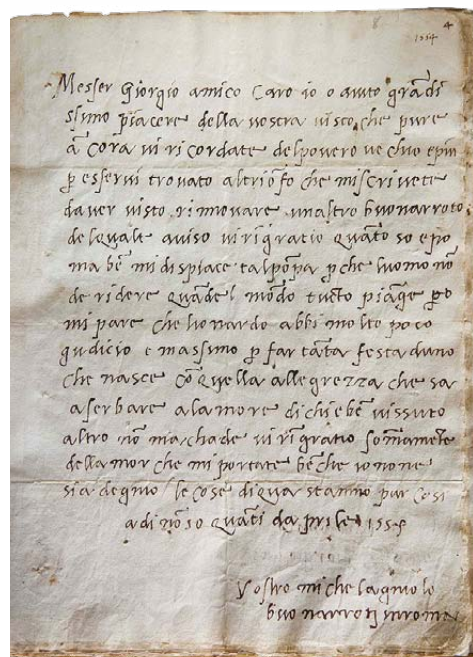 4
1554
Messer Giorgio amico caro io o auto grādi
ssimo piacere della vostra visto che pure
ācora vi ricordate del povero vechio e piu
p esservi trovato al triōfo che mi scrivete
d aver visto rinnovare un altro buonarroto
del quale aviso vi rīgratio quāto so e po
ma bē mi dispiace tal pōpa p che l uomo nō
de ridere quāde l mōdo tucto piāge po
mi pare che lionardo abbi molto poco
gudicio e massimo p far tāta festa d uno
che nasce cō quella allegrezza che s a
a serbare a la morte di chi e bē vissuto
altro nō m achade vi rīgratio sommamēte
dell amor che mi portate bēche io no ne
sia degnio le cose di qua stanno pur cosi
a di nō so quāti d aprile 1554
Vostro michelagniolo
buonarroti in roma